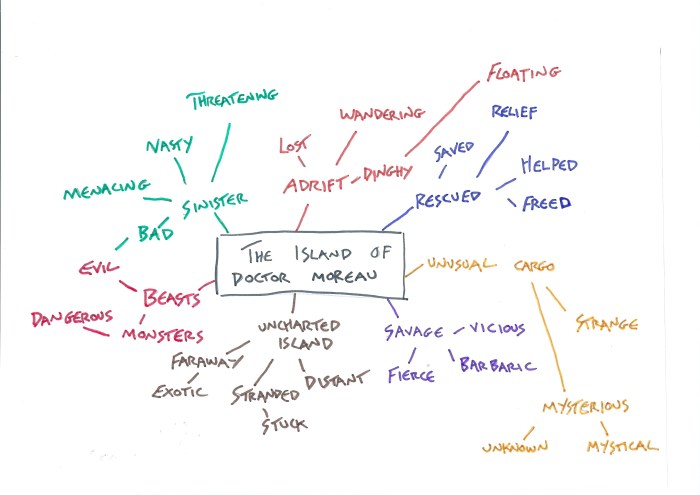 FLOATING
THREATENING
WANDERING
RELIEF
LOST
NASTY
SAVED
HELPED
MENACING
SINISTER
ADRIFT
DINGHY
RESCUED
FREED
BAD
THE ISLAND OF
DOCTOR MOREAU
EVIL
UNUSUAL CARGO
BEASTS
DANGEROUS
MONSTERS
UNCHARTED
ISLAND
SAVAGE
VICIOUS
STRANGE
FARAWAY
FIERCE
BARBARIC
EXOTIC
STRANDED
DISTANT
STUCK
MYSTERIOUS
UNKNOWN
MYSTICAL